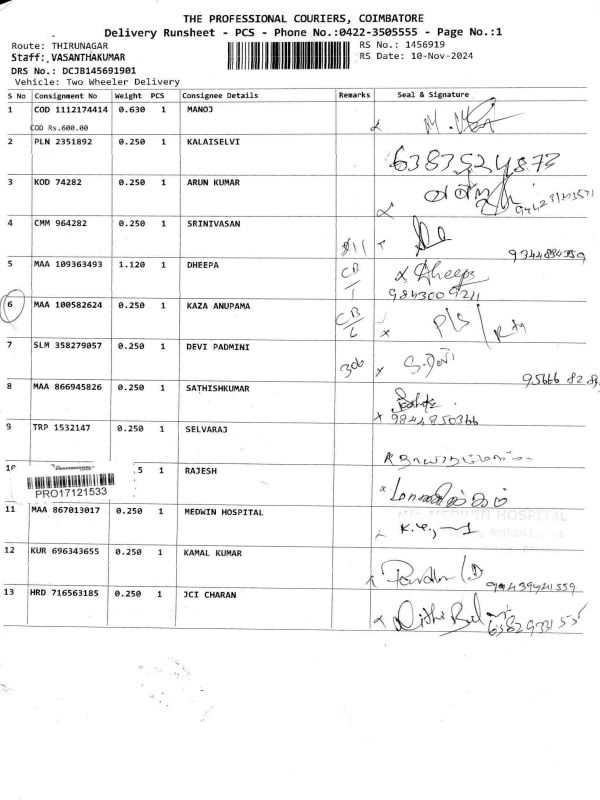 THE PROFESSIONAL COURIERS, COIMBATORE
Delivery Runsheet - PCS - Phone No.:0422-3505555 - Page No.:1
Route: THIRUNAGAR RS No.: 1456919
Staff: VASANTHAKUMAR RS Date: 10-Nov-2024
DRS No.: DCJB145691901
Vehicle: Two Wheeler Delivery
S No Consignment No Weight PCS Consignee Details Remarks Seal & Signature
1 COD 1112174414 0.630 1 MANOJ
COD Rs.600.00
2 PLN 2351892 0.250 1 KALAISELVI
6383524873
3 KOD 74282 0.250 1 ARUN KUMAR
4 CMM 964282 0.250 1 SRINIVASAN
5 MAA 109363493 1.120 1 DHEEPA CB Dheepa
9843009211
6 MAA 100582624 0.250 1 KAZA ANUPAMA CB P/S
7 SLM 358279057 0.250 1 DEVI PADMINI 306 S. Devi
95666 82 8
8 MAA 866945826 0.250 1 SATHISHKUMAR
9844850366
9 TRP 1532147 0.250 1 SELVARAJ
5 1 RAJESH
PRO17121533
11 MAA 867013017 0.250 1 MEDWIN HOSPITAL MEDWIN HOSPITAL
12 KUR 696343655 0.250 1 KAMAL KUMAR
13 HRD 716563185 0.250 1 JCI CHARAN